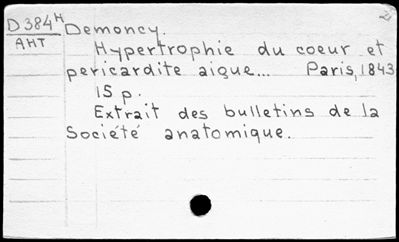 D 384 H
AHT
Demoncy.
Hypertrophie du coeur et
pericardite aigue... Paris, 1843
15 p.
Extrait des bulletins de la
Société anatomique.